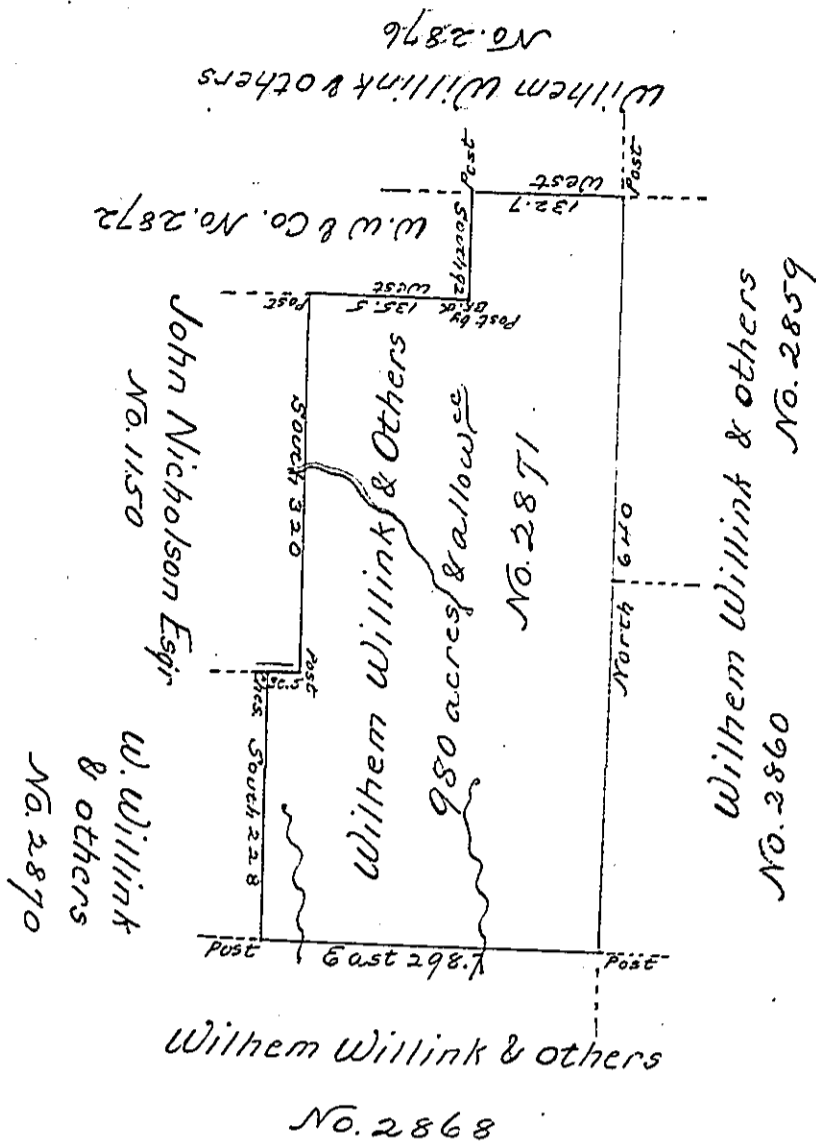 No. 2876
Wilhem Willink & others
W.W & Co. No. 2872
Post
West
132.7
Post
South 92
Post by
Br. ok
West
135.5
Post
John Nicholson Esqr
No. 1150
South 320
Wilhem Willink & Others
980 acres & allowce
No. 2871
North 640
Wilhem Willink & others
No. 2859
No. 2860
Post
Ches.
South 228
W. Willink
& others
No. 2870
Post
East 298.7
Post
Wilhem Willink & others
No. 2868